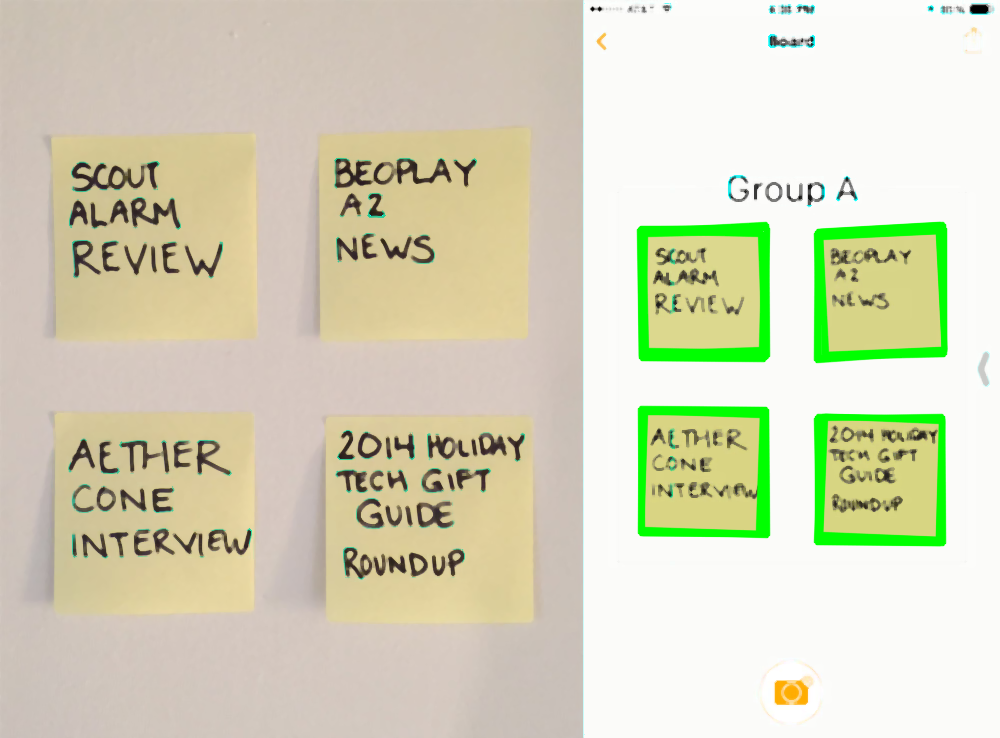 SCOUT
ALARM
REVIEW
BEOPLAY
A2
NEWS
AETHER
CONE
INTERVIEW
2014 HOLIDAY
TECH GIFT
GUIDE
ROUNDUP
Board
Group A
SCOUT
ALARM
REVIEW
BEOPLAY
A2
NEWS
AETHER
CONE
INTERVIEW
2014 HOLIDAY
TECH GIFT
GUIDE
ROUNDUP